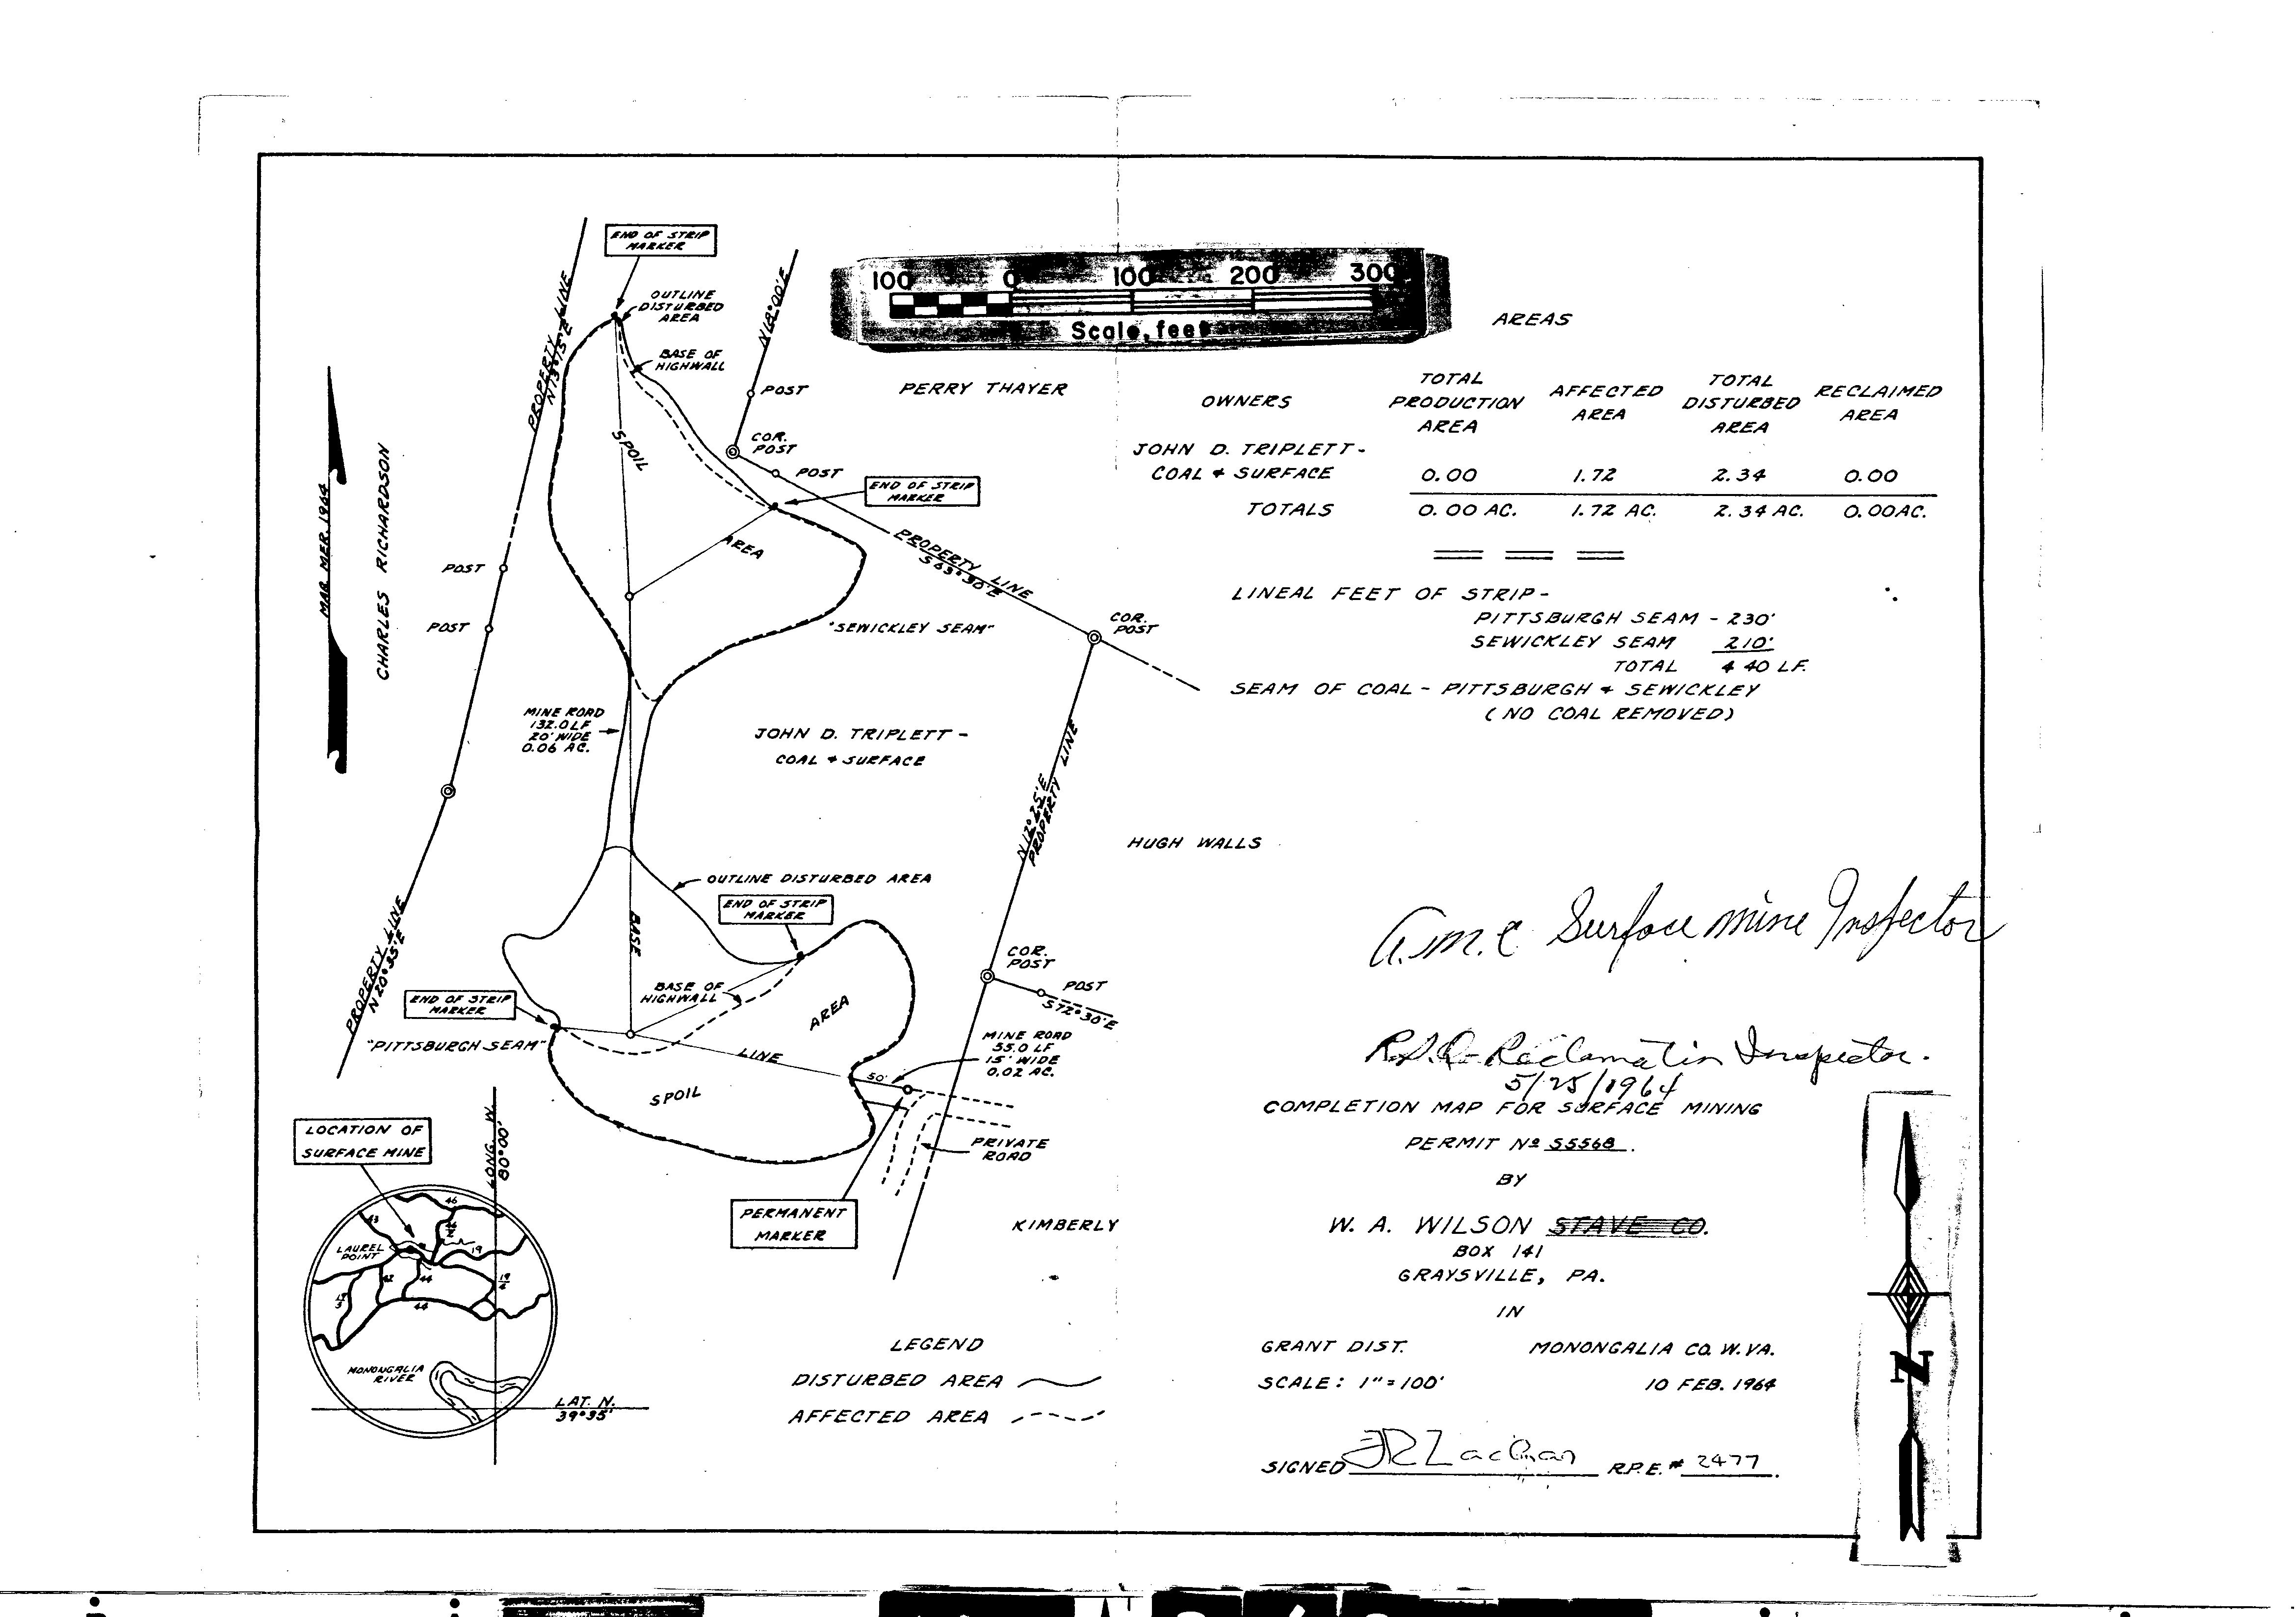 END OF STRIP
MARKER
OUTLINE
DISTURBED
AREA
BASE OF
HIGHWALL
PROPERTY LINE
N 13°15'E
N 18°00'E
POST
COR.
POST
POST
SPOIL
AREA
END OF STRIP
MARKER
100 0 100 200 300
Scale, feet
PERRY THAYER
PROPERTY LINE
S 63°30'E
MAG. MER. 1964
CHARLES RICHARDSON
POST
POST
"SEWICKLEY SEAM"
COR.
POST
MINE ROAD
132.0 LF
20' WIDE
0.06 AC.
JOHN D. TRIPLETT -
COAL & SURFACE
N 12°25'E
PROPERTY LINE
HUGH WALLS
OUTLINE DISTURBED AREA
END OF STRIP
MARKER
BASE
PROPERTY LINE
N 20°35'E
END OF STRIP
MARKER
BASE OF
HIGHWALL
AREA
COR.
POST
POST
S 72°30'E
"PITTSBURGH SEAM"
LINE
50'
MINE ROAD
55.0 LF
15' WIDE
0.02 AC.
SPOIL
PRIVATE
ROAD
PERMANENT
MARKER
KIMBERLY
LOCATION OF
SURFACE MINE
LONG. W.
80°00'
46
43
LAUREL
POINT
19
42
44
19/4
44
MONONGALIA
RIVER
LAT. N.
39°35'
LEGEND
DISTURBED AREA
AFFECTED AREA
AREAS
OWNERS
TOTAL
PRODUCTION
AREA
AFFECTED
AREA
TOTAL
DISTURBED
AREA
RECLAIMED
AREA
JOHN D. TRIPLETT -
COAL & SURFACE 0.00 1.72 2.34 0.00
TOTALS 0.00 AC. 1.72 AC. 2.34 AC. 0.00 AC.
LINEAL FEET OF STRIP -
PITTSBURGH SEAM - 230'
SEWICKLEY SEAM 210'
TOTAL 440 LF.
SEAM OF COAL - PITTSBURGH & SEWICKLEY
(NO COAL REMOVED)
Surface mine Inspector
Reclamation Inspector.
5/25/1964
COMPLETION MAP FOR SURFACE MINING
PERMIT No 55568.
BY
W. A. WILSON STAVE CO.
BOX 141
GRAYSVILLE, PA.
IN
GRANT DIST. MONONGALIA CO. W. VA.
SCALE: 1"=100' 10 FEB. 1964
SIGNED R.P.E. # 2477.
N